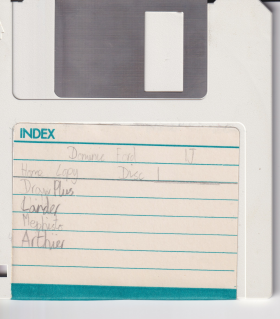 INDEX
Dominic Ford L7
Home Copy Disc 1
Draw Plus
Lander
Arthur